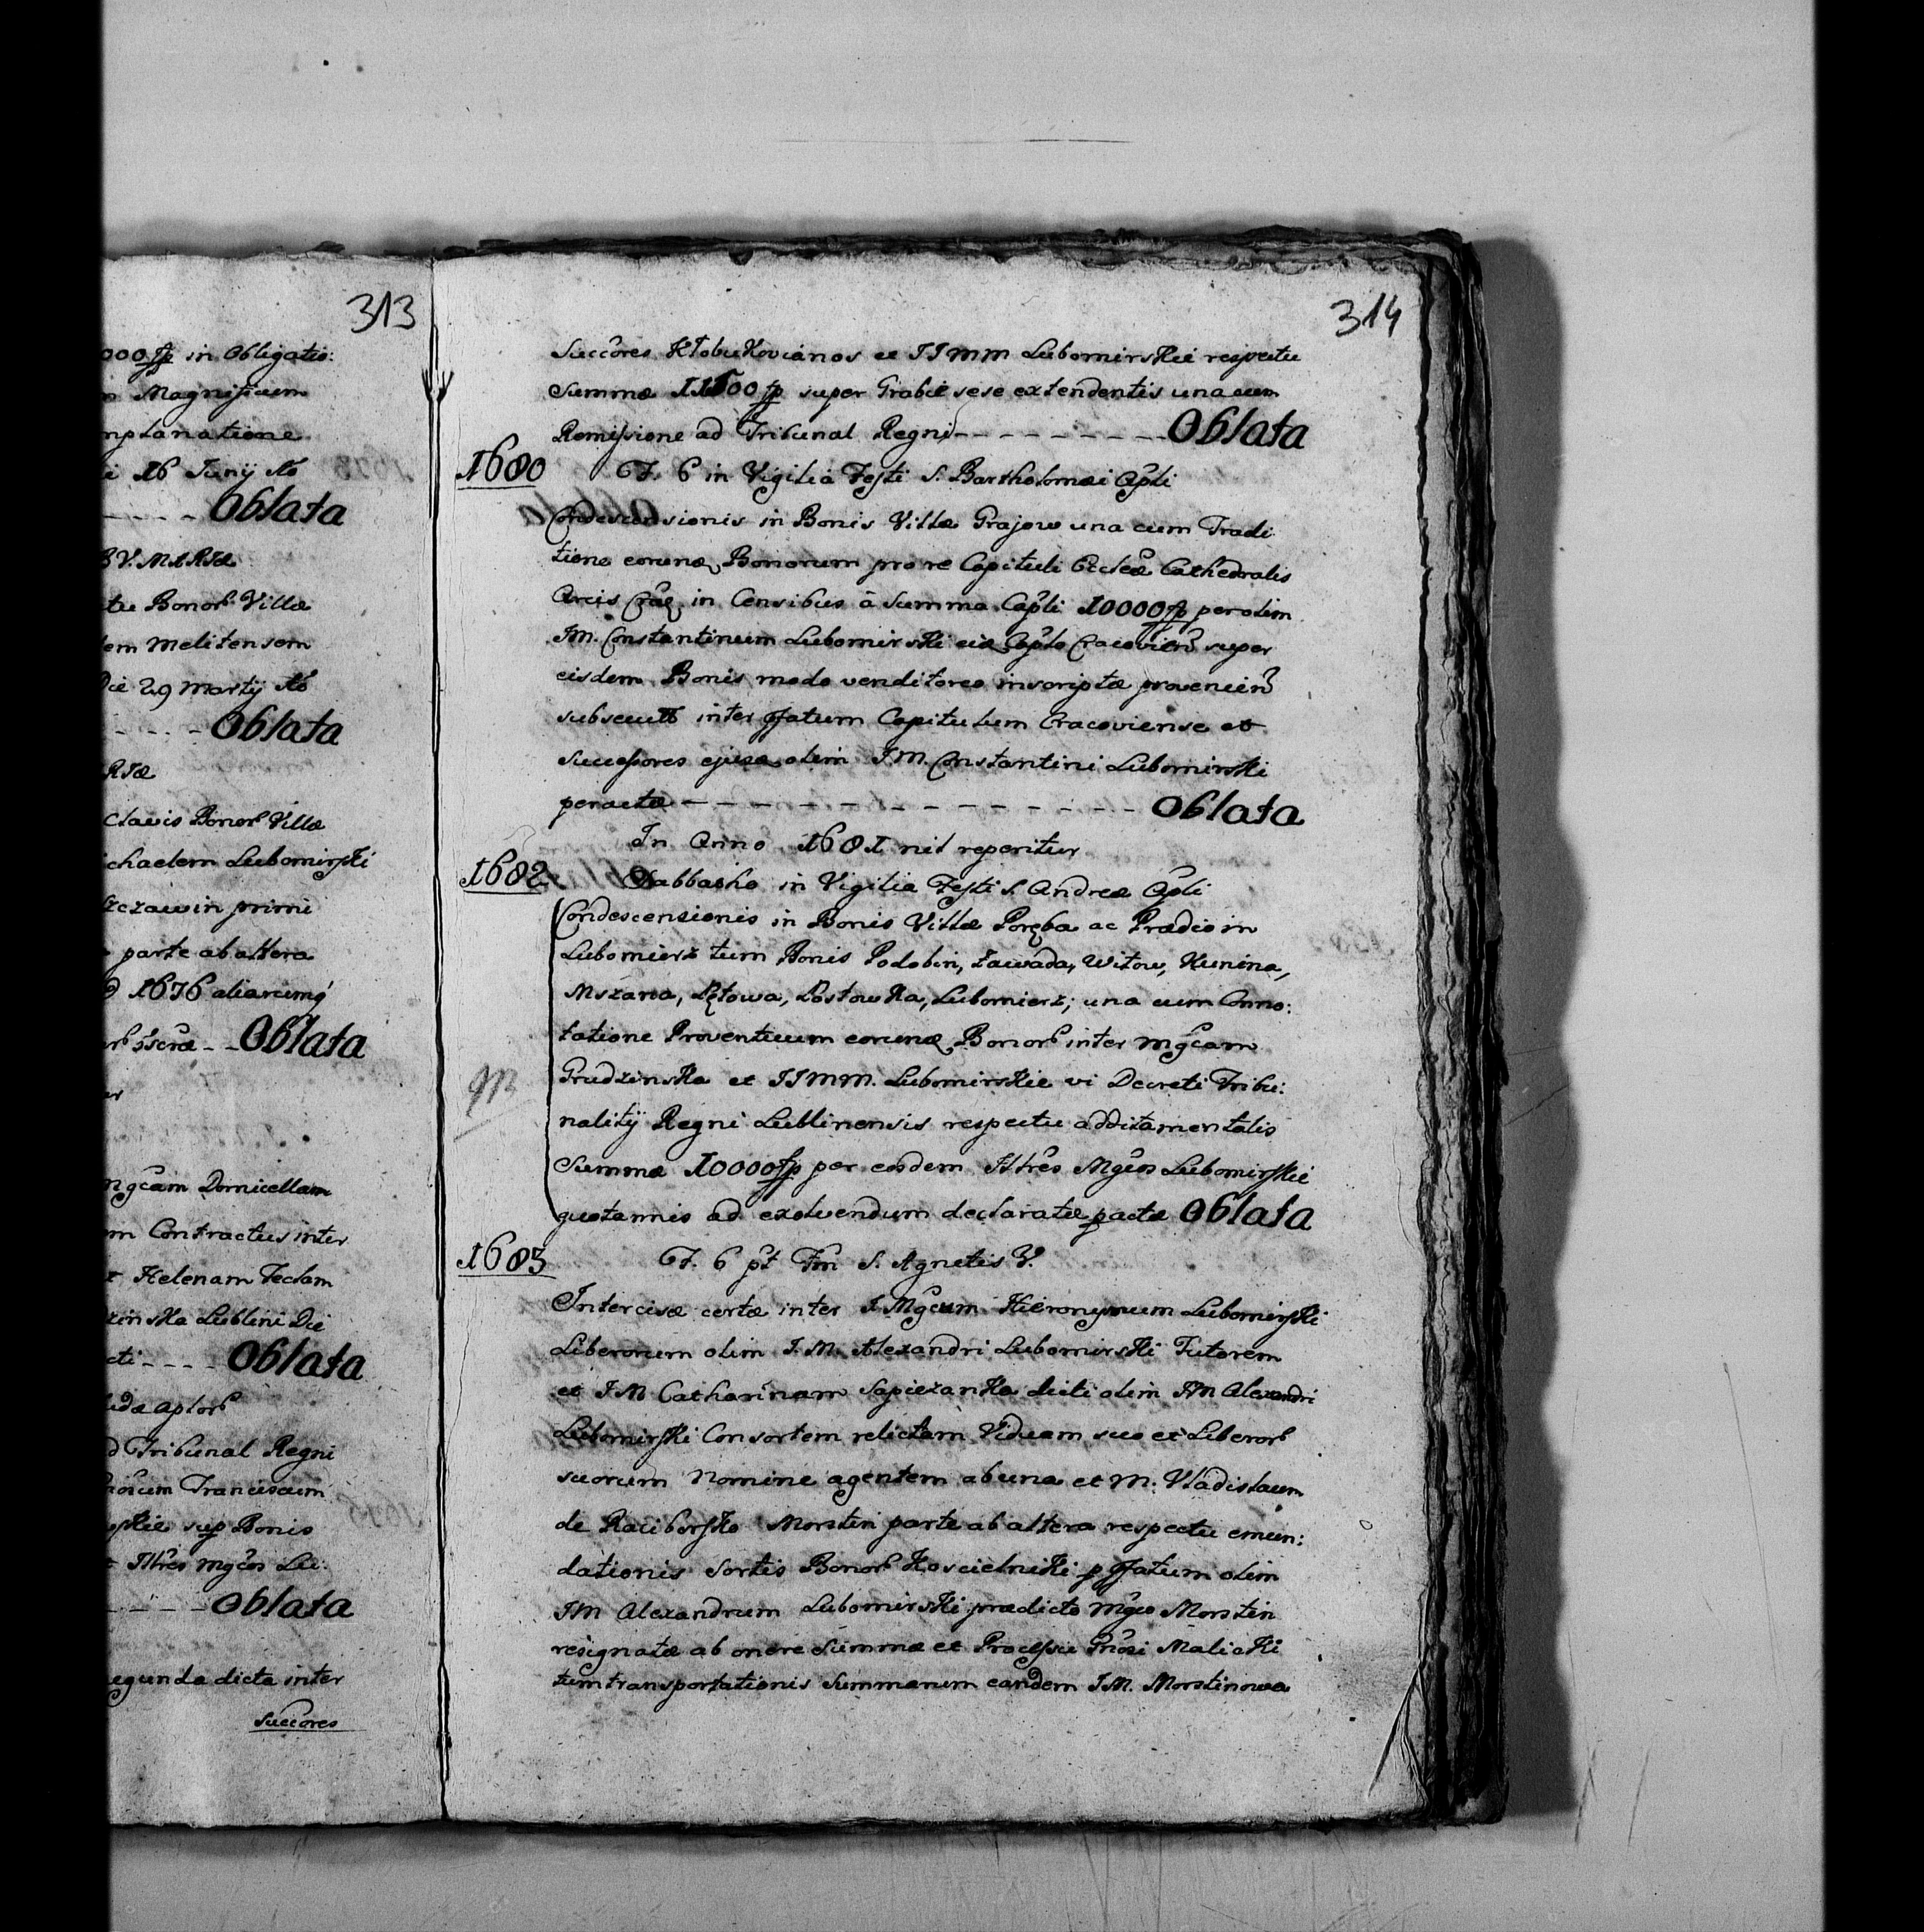 313
000 fp in Obligatio:
Magnificum
mplanatione
16 Junij Ao
Oblata
B V. MARIÆ
tu Bonor Villæ
dem Melitensem
Die 29 Martij Ao
Oblata
RIÆ
Clavis Bonor Villæ
ichaelem Lubomirski
szczawin primi
parte ab altera
1676 aliarumq
Oblata
Mgcam Domicellam
m Contractus inter
Helenam Teclam
zinska Lublini Die
cti - - - - Oblata
udæ Aplor
d Tribunal Regni
Franciscum
skie sup Bonis
Illres Mgcos Lu:
Oblata
egunda dicta inter
Succores
314
Succores Kłobukovianos et IImm Lubomirskie respectu
Summæ 11500 fp super Grabie sese extendentis una cum
Remissione ad Tribunal Regni - - - - - - - - - Oblata
1680 F. 6 in Vigilia Festi S. Bartholomæi Apli
Condescensionis in Bonis Villæ Grajow una cum Tradi
tione eorund Bonorum pro re Capituli Eccleæ Cathedralis
Arcis Crac. in Censibus à Summa Capli 10000 fp per olim
IM. Constantinum Lubomirski eid Caplo Cracovien super
eisdem Bonis modo venditoreo inscriptæ provenien
subsecutæ inter pfatum Capitulum Cracoviense et
Successores ejusd olim IM. Constantini Lubomirski
peractæ - - - - - - - - - - - - - - Oblata
In Anno 1681 nil reperitur
1682 Sabbatho in Vigilia Festi S. Andreæ Apli
Condescensionis in Bonis Villæ Poręba ac Prædio in
Lubomierz tum Bonis Podobin, Zawada, Witow, Kunina,
Mszana, Łętowa, Łostowka, Lubomierz; una cum Conno:
tatione Proventuum eorund Bonor inter Mgcam
Grudzinska et IImm. Lubomirskie vi Decreti Tribu:
nalitij Regni Lublinensis respectu additamentalis
Summæ 10000 fp per eosdem Illres Mgcos Lubomirskie
quotannis ad exolvendum declaratæ pactæ Oblata
1683 F. 6 pt Fm S. Agnetis V.
Intercisæ certæ inter I Mgcum Hieronymum Lubomirski
Liberorum olim I. M. Alexandri Lubomirski Tutorem
et IM Catharinam Sapiezanka dicti olim IM Alexandri
Lubomirski Consortem relictam Viduam, suo et Liberor
suorum Nomine agentem ab una et M. Vladislaum
de Raciborsko Morstin parte ab altera respectu emun:
dationis Sortis Bonor Koscielniki p pfatum olim
IM Alexandrum Lubomirski prædicto Mgco Morstin
resignatæ ab onere Summæ et Processu Gnosi Malicki
tum transportationis Summarum eandem IM. Morstinowa